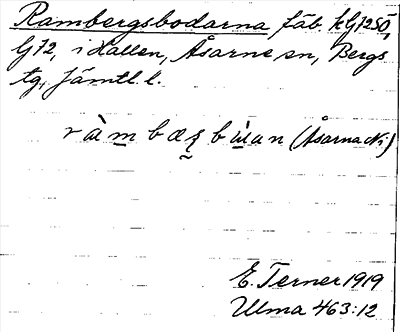 Rambergsbodarna fäb. kG1250,
G72, i Hallen, Åsarne sn, Bergs
tg, Jämtl. l.
(Åsarna
E. Terner 1919
Ulma 463:12